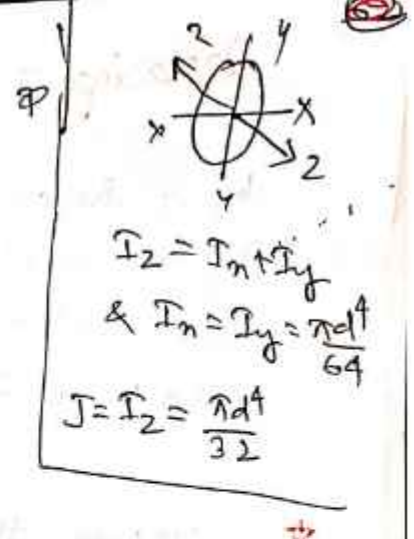 62
z y
x x
z
y
I_z = I_x + I_y
& I_x = I_y = πd⁴/64
J = I_z = πd⁴/32